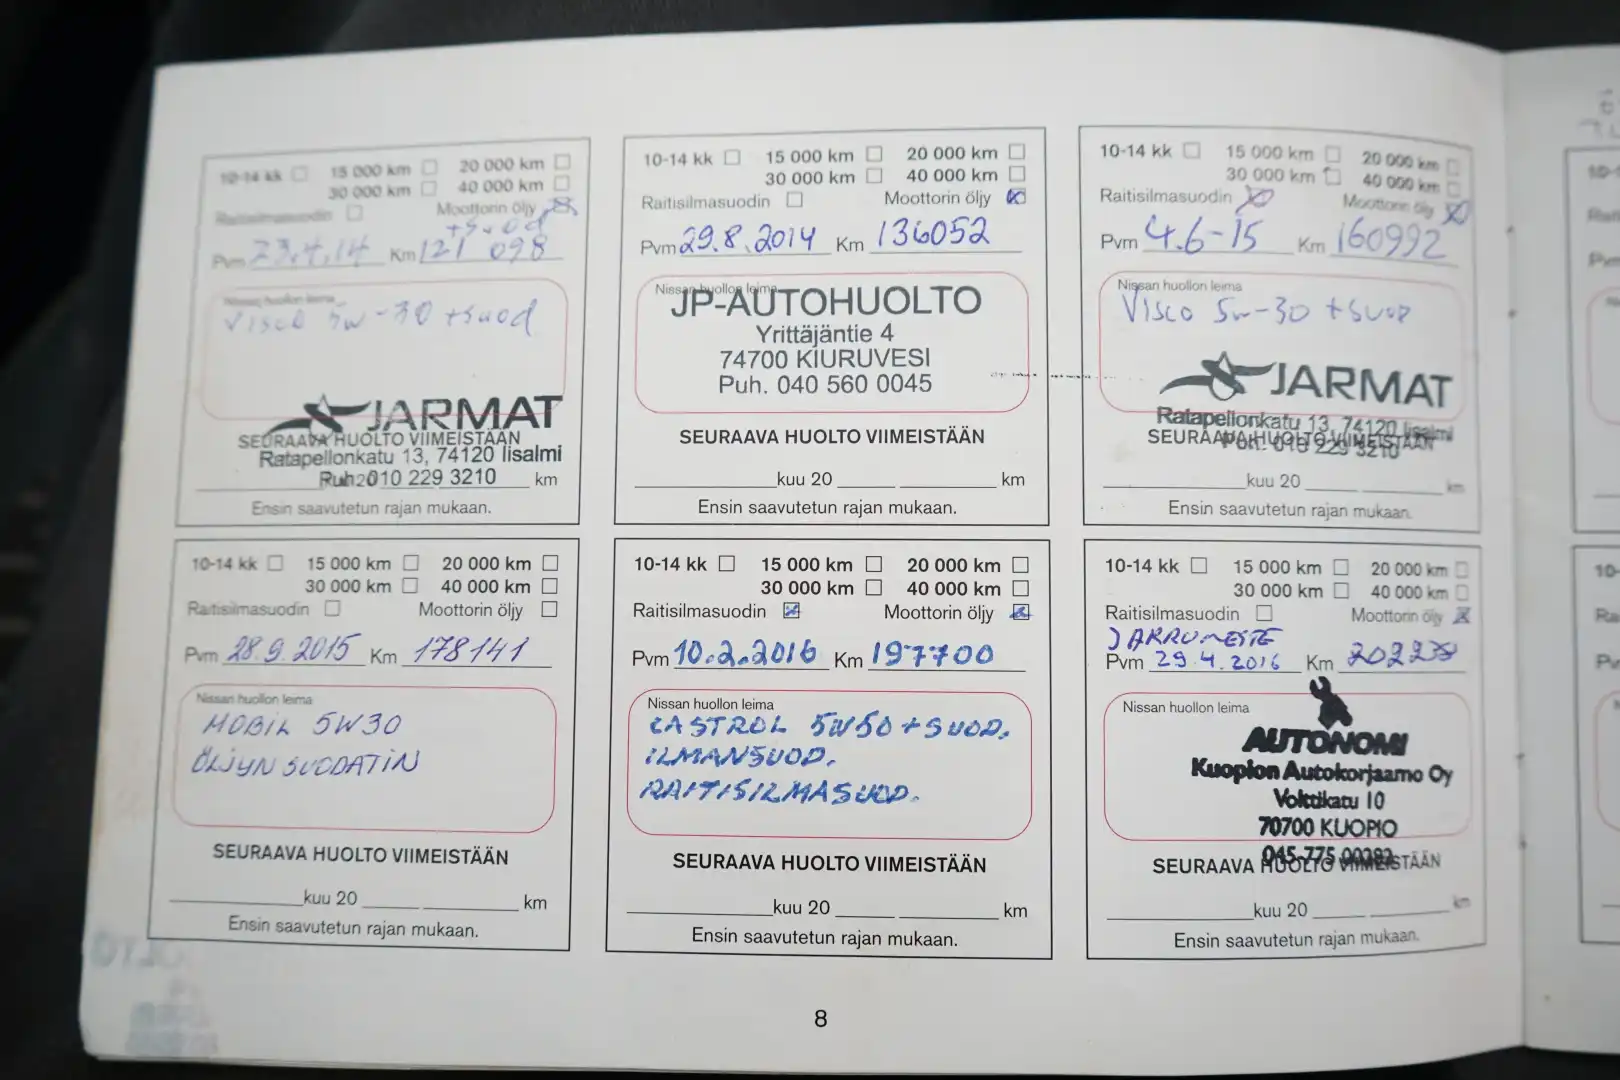 10-14 kk 15 000 km 20 000 km
30 000 km 40 000 km
Raitisilmasuodin Moottorin öljy
+suod
Pvm 23.4.14 Km 121 098
Nissan huollon leima
Visco 5w-30 +suod
JARMAT
SEURAAVA HUOLTO VIIMEISTÄÄN
Ratapellonkatu 13, 74120 Iisalmi
Puh. 010 229 3210 km
Ensin saavutetun rajan mukaan.
10-14 kk 15 000 km 20 000 km
30 000 km 40 000 km
Raitisilmasuodin Moottorin öljy
Pvm 29.8.2014 Km 136052
Nissan huollon leima
JP-AUTOHUOLTO
Yrittäjäntie 4
74700 KIURUVESI
Puh. 040 560 0045
SEURAAVA HUOLTO VIIMEISTÄÄN
kuu 20 km
Ensin saavutetun rajan mukaan.
10-14 kk 15 000 km 20 000 km
30 000 km 40 000 km
Raitisilmasuodin Moottorin öljy
Pvm 4.6-15 Km 160992
Nissan huollon leima
Visco 5w-30 +suod
JARMAT
Ratapellonkatu 13, 74120 Iisalmi
SEURAAVA HUOLTO VIIMEISTÄÄN
Puh. 010 229 3210
kuu 20 km
Ensin saavutetun rajan mukaan.
10-14 kk 15 000 km 20 000 km
30 000 km 40 000 km
Raitisilmasuodin Moottorin öljy
Pvm 28.9.2015 Km 178141
Nissan huollon leima
MOBIL 5W30
ÖLJYN SUODATIN
SEURAAVA HUOLTO VIIMEISTÄÄN
kuu 20 km
Ensin saavutetun rajan mukaan.
10-14 kk 15 000 km 20 000 km
30 000 km 40 000 km
Raitisilmasuodin Moottorin öljy
Pvm 10.2.2016 Km 197700
Nissan huollon leima
CASTROL 5W50 + SUOD.
ILMANSUOD.
RAITISILMASUOD.
SEURAAVA HUOLTO VIIMEISTÄÄN
kuu 20 km
Ensin saavutetun rajan mukaan.
10-14 kk 15 000 km 20 000 km
30 000 km 40 000 km
Raitisilmasuodin Moottorin öljy
JARRUNESTE
Pvm 29.4.2016 Km
Nissan huollon leima
AUTONOMI
Kuopion Autokorjaamo Oy
Volttikatu 10
70700 KUOPIO
045-775 00282
SEURAAVA HUOLTO VIIMEISTÄÄN
kuu 20 km
Ensin saavutetun rajan mukaan.
8